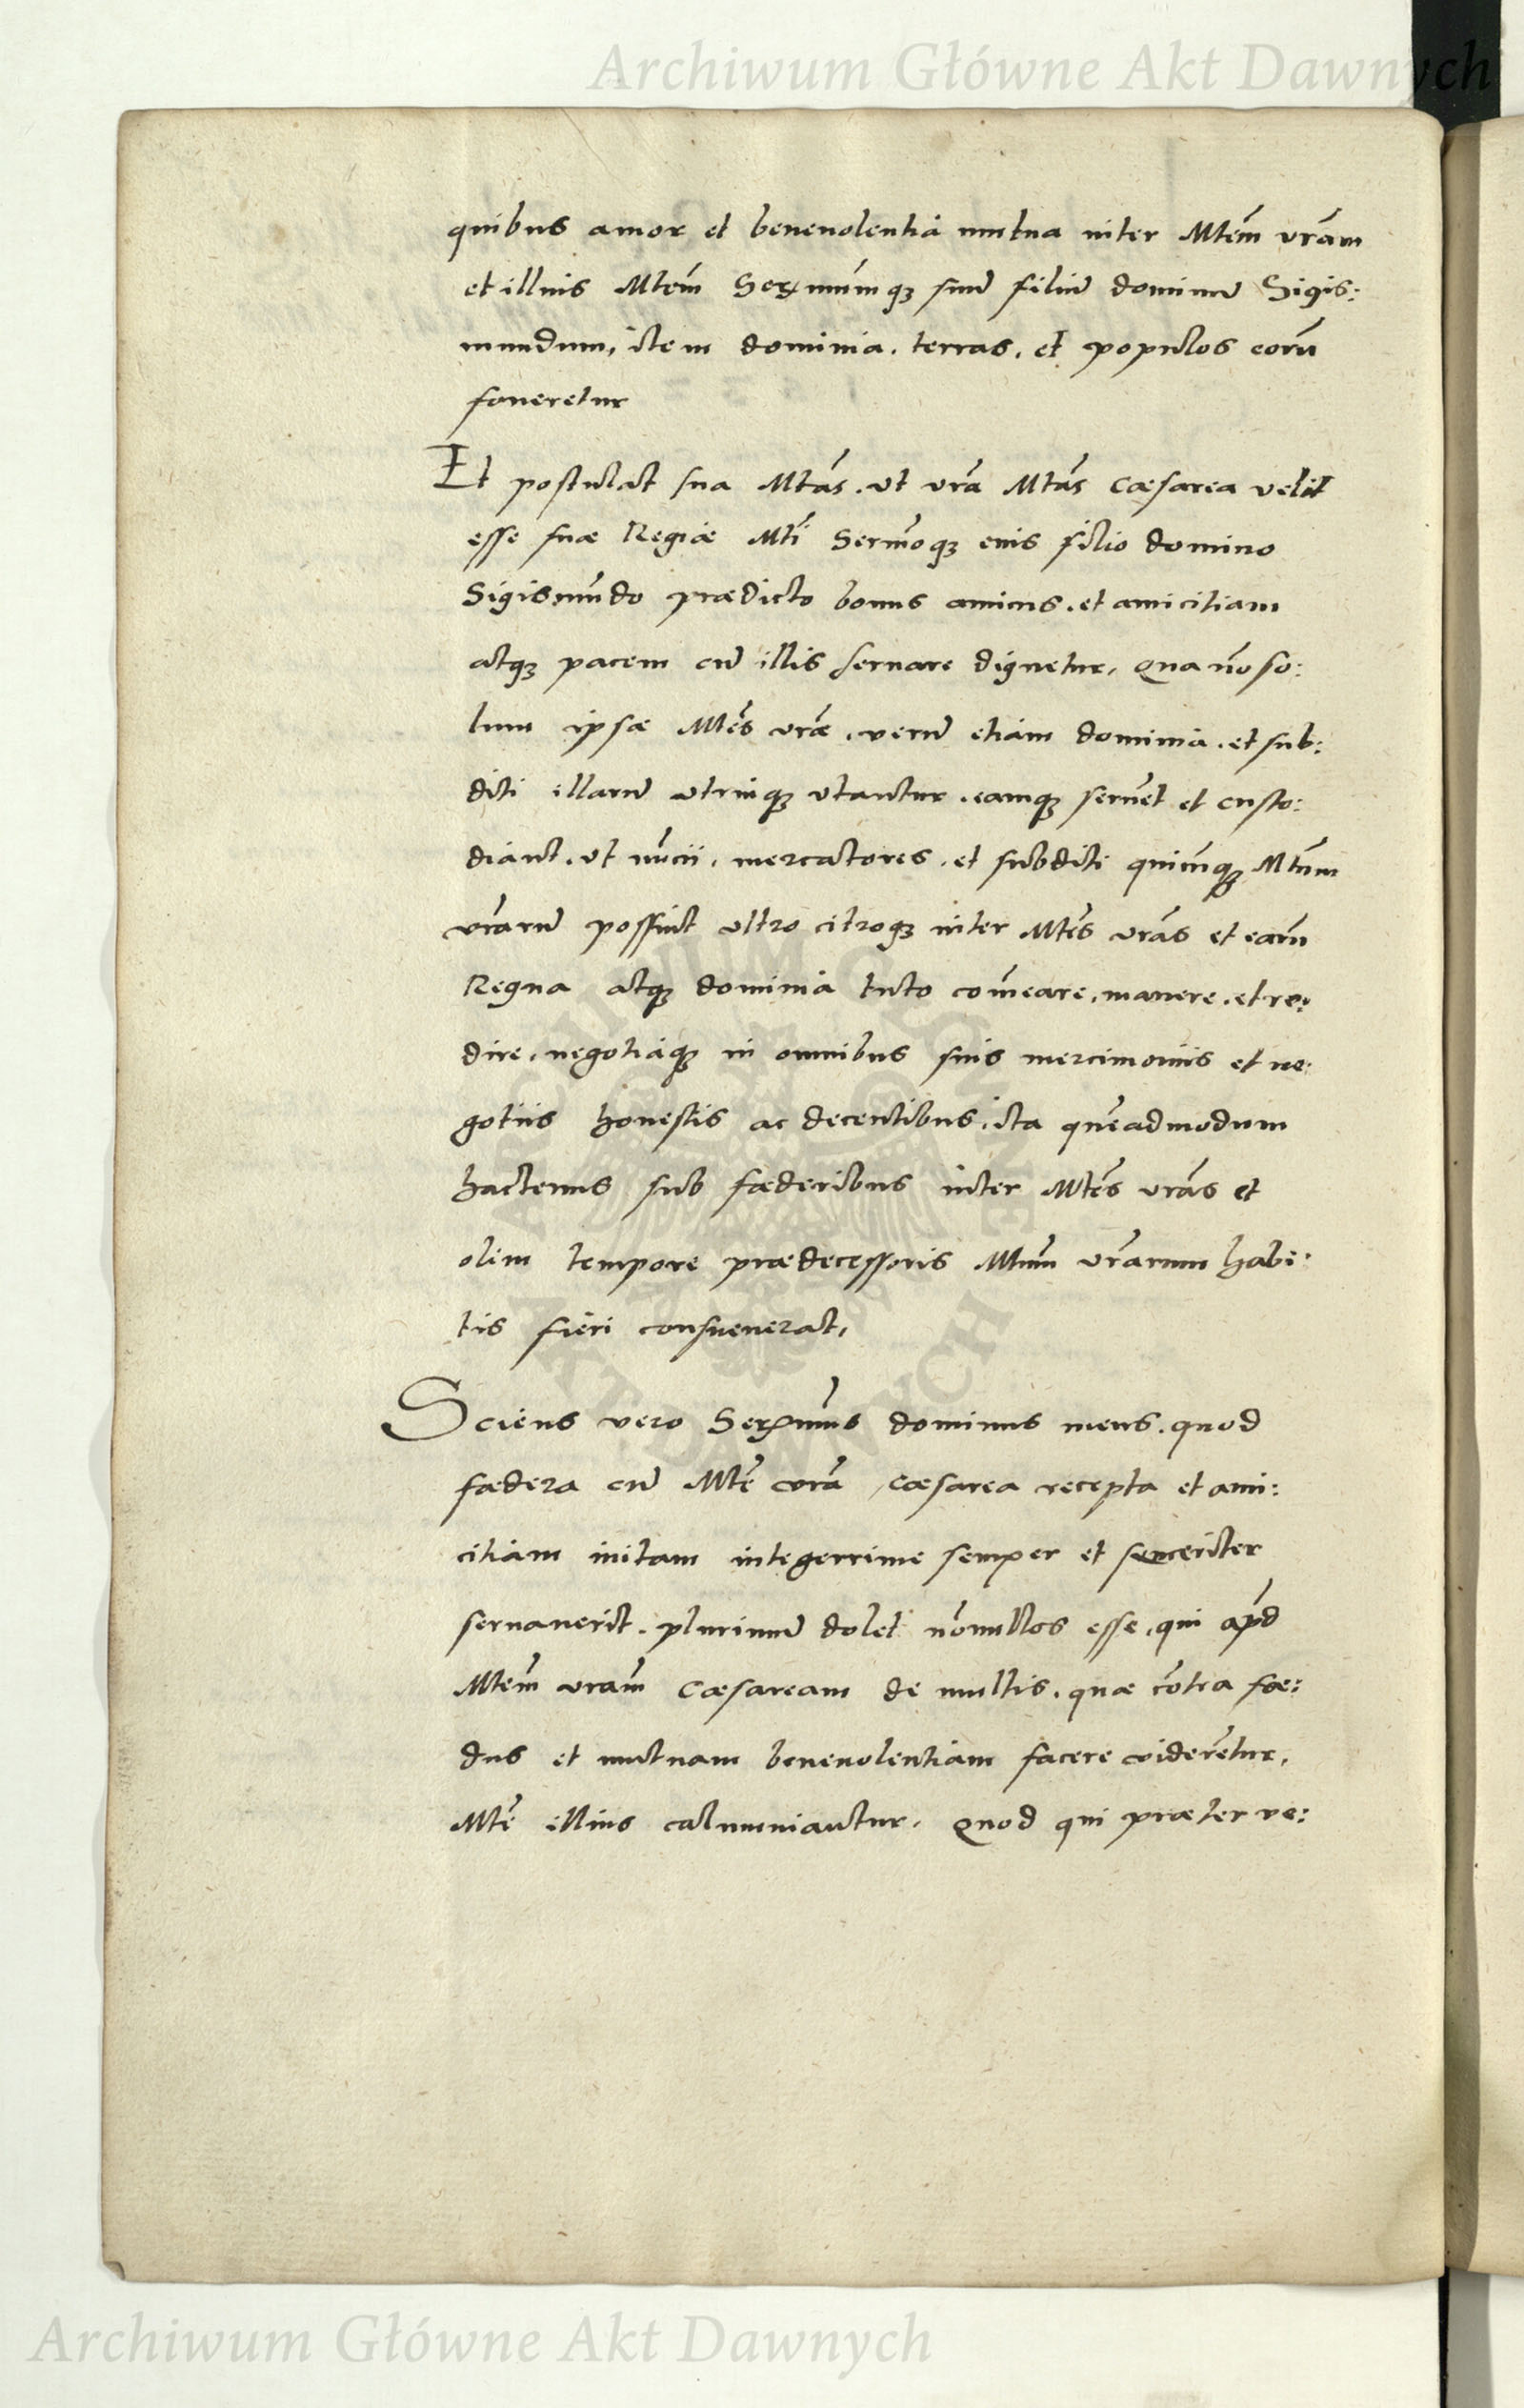 Archiwum Główne Akt Dawnych
quibus amor et beneuolentia mutua inter Mtem̄ vrām
et illius Mtem̄ Serxmūmqꝫ suū filiū dominū Sigis:
mundum, item dominia. terras. et populos eorū
foueretur
Et postulat sua Mtās. ut vrā Mtās Cæsarea velit
esse suæ Regiæ Mtī Sermōqꝫ eius filio domino
Sigismūdo prædicto bonus amicus. et amicitiam
atqꝫ pacem cū illis seruare dignetur, Qua nō so:
lum ipsæ Mtēs vrāe. verū etiam dominia. et sub:
diti illarū utrinqꝫ utantur. eamqꝫ seruēt et custo:
diant. ut nūcii. mercatores. et subditi quicūqꝫ Mtūm
vrārū possint ultro citroqꝫ inter Mtēs vrās et earū
Regna atqꝫ dominia tuto com̄eare, manere. et re:
dire. negotiaqꝫ in omnibus suis mercimoniis et ne:
gotiis honestis ac decentibus. ita quēadmodum
hactenus sub fœderibus inter Mtēs vrās et
olim tempore prædecessoris Mtum̄ vrārum habi:
tis fieri consueuerat,
Sciens vero Serxmūs dominus meus. quod
fœdera cū Mtē vrā Cæsarea recepta et ami:
citiam initam integerrime semper et synceriter
seruauerit. plurimū dolet nōnullos esse. qui apd̄
Mtem̄ vram̄ Cæsaream de multis. quæ cōtra fœ:
dus et mutuam beneuolentiam facere viderētur,
Mtē illius calumniantur. Quod qui præter re:
Archiwum Główne Akt Dawnych